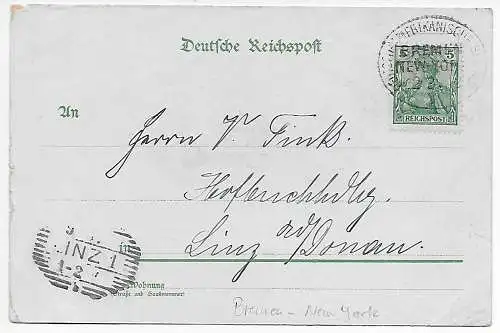 Deutsche Reichspost
BREMEN
NEW-YORK
5 5
REICHSPOST
An
Herrn V. Fink.
Hofbuchhdlg.
a/d
in Linz Donau.
LINZ 1
1-2
Wohnung
(Straße und Hausnummer)
Bremen - New York